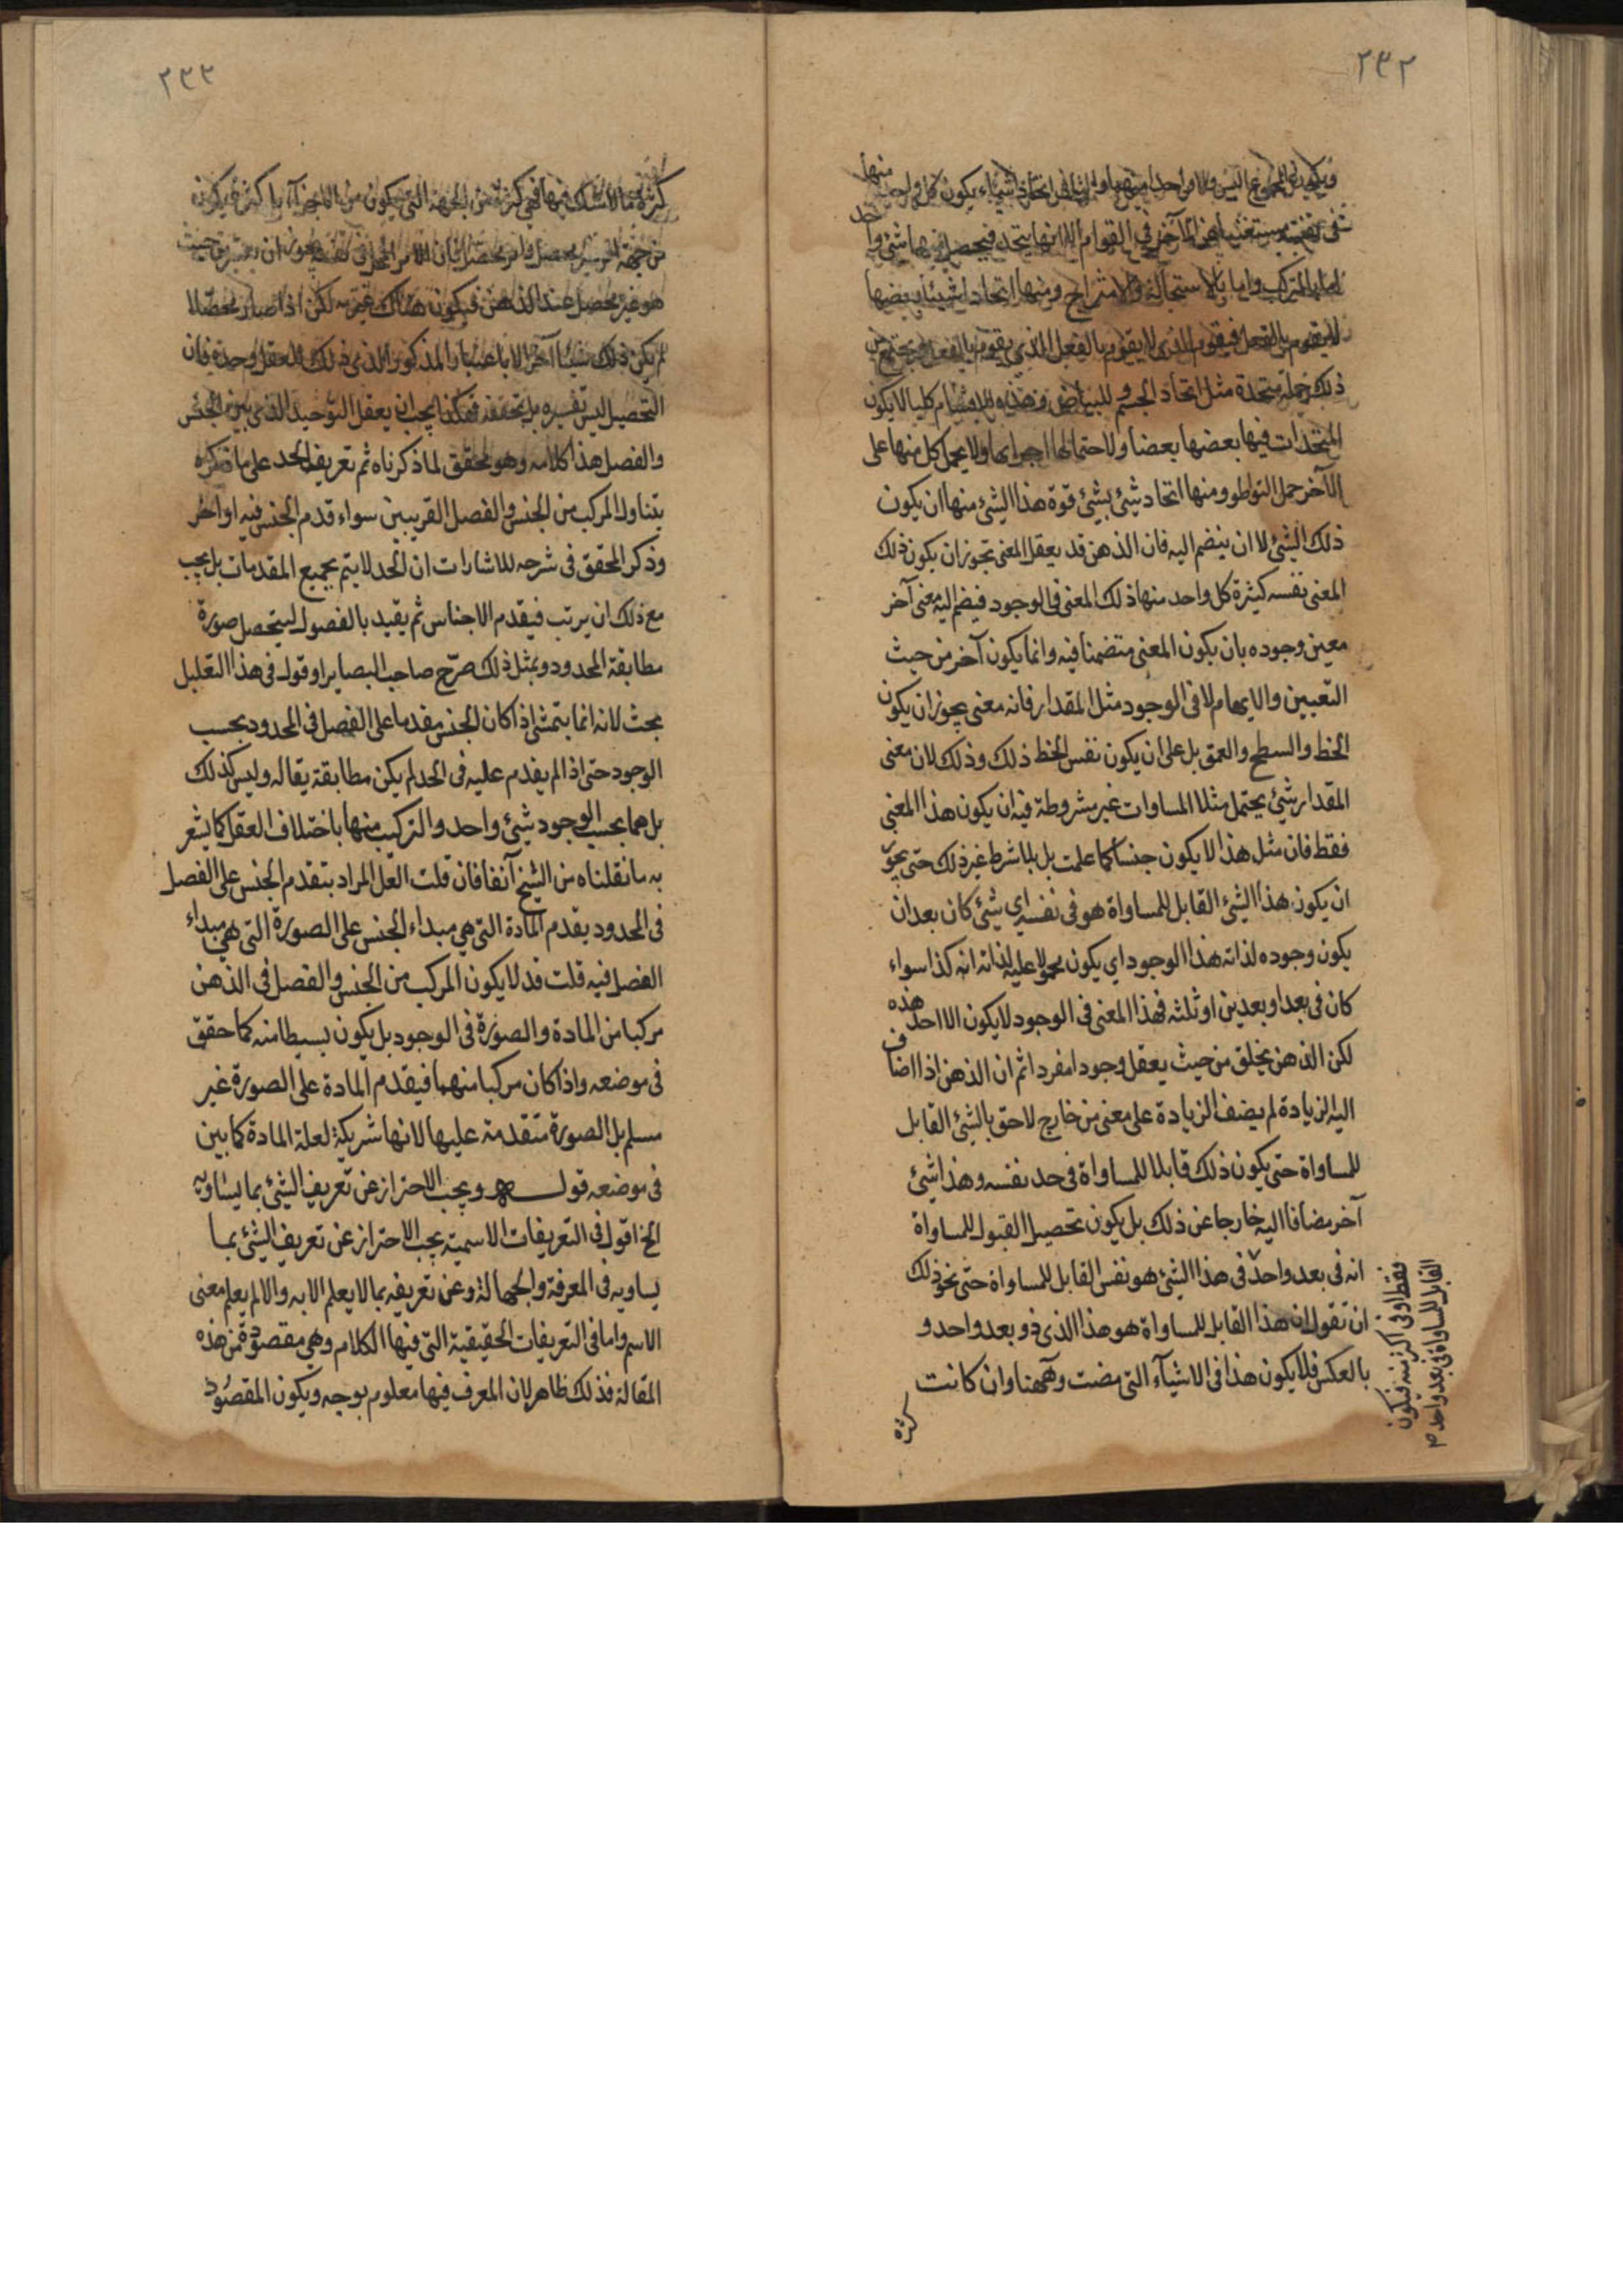 ٢٣٢
ويكون المجموع ليس ولا واحدا منهما والثاني اتحاد اشياء يكون كل واحد منها
في نفسه مستغنيا عن الآخر في القوام الا انها يتحد فيحصل منها شئ واحد
اما بالتركيب واما بالاستحالة والامتزاج ومنها اتحاد اشياء بعضها
لا يقوم بالفعل فيقوم الذي لا يقوم بالفعل بالذي يقوم بالفعل ويجتمع من
ذلك جملة متحدة مثل اتحاد الجسم للبياض وهذه الاقسام كلها لا يكون
المتحدات فيها بعضها بعضا ولا جملتها اجزاءها ولا يحمل كل منها على
الآخر حمل التواطو ومنها اتحاد شيئ بشيئ قوة هذا الشيئ منها ان يكون
ذلك الشيئ لا ان ينضم اليه فان الذهن قد يعقل المعنى تجوز ان يكون ذلك
المعنى نفسه كثيرة كل واحد منها ذلك المعنى في الوجود فيضم اليه معنى آخر
معين وجوده بان يكون المعنى متضمنا فيه وانما يكون آخر من حيث
التعيين والابهام لا في الوجود مثل المقدار فانه معنى يجوز ان يكون
الخط والسطح والعمق بل على ان يكون نفس الخط ذلك وذلك لان معنى
المقدار شيئ يحتمل مثلا المساوات غير مشروطة فيه ان يكون هذا المعنى
فقط فان مثل هذا لا يكون جنسا كما علمت بل بلا شرط غير ذلك حتى يجوز
ان يكون هذا الشيئ القابل للمساواة هو في نفسه اي شيئ كان بعد ان
يكون وجوده لذاته هذا الوجود اي يكون محمولا عليه لذاته انه كذا سواء
كان في بعد او بعدين او ثلثه فهذا المعنى في الوجود لا يكون الا احد هذه
لكن الذهن يخلق من حيث يعقل وجودا مفردا ثم ان الذهن اذا اضاف
اليه الزيادة لم يضف الزيادة على معنى من خارج لاحق بالشيئ القابل
للمساواة حتى يكون ذلك قابلا للمساواة في حد نفسه وهذا شيئ
آخر مضافا اليه خارجا عن ذلك بل يكون تحصيل القبول للمساواة
انه في بعد واحد في هذا الشيئ هو نفس القابل للمساواة حتى نحو ذلك
ان تقول ان هذا القابل للمساواة هو هذا الذي ذو بعد واحد و
بالعكس فلا يكون هذا في الاشياء التي مضت وههنا وان كانت
كثرة
فقط او في اكثر منه فيكون
القابل للمساواة في بعد واحد
٢٣٣
كثرة ما لا شك فيها فهي كثرة ليس من الجهة التي يكون من الاجزاء بل كثرة يكون
من جهة امر غير محصل وامر محصل فان الامر المحصل في نفسه يجوز ان يعتبر من حيث
هو غير محصل عند الذهن فيكون هناك غيرية لكن اذا صار محصلا
لم يكن ذلك شيئا آخر الا بالاعتبار المذكور الذي ذلك للعقل وحده فان
التحصيل ليس تغييره بل تحققه فهكذا يجب ان يعقل التوحيد الذي بين الجنس
والفصل هذا كلامه وهو محقق لما ذكرناه ثم تعريف الحد على ما ذكره
يتناول المركب من الجنس والفصل القريبين سواء قدم الجنس فيه او اخر
وذكر المحقق في شرحه للاشارات ان الحد لا يتم بجميع المقدمات بل يجب
مع ذلك ان يرتب فيقدم الاجناس ثم يقيد بالفصول ليتحصل صورة
مطابقة للمحدود وبمثل ذلك صرّح صاحب البصاير اوقول في هذا التعليل
بحث لانه انما يتمشى اذا كان الجنس مقدما على الفصل في المحدود بحسب
الوجود حتى اذا لم يقدم عليه في الحد لم يكن مطابقة يقاله وليس كذلك
بل هما بحسب الوجود شيئ واحد والتركيب منهما باختلاف العقل كما يشعر
به ما نقلناه من الشيخ آنفا فان قلت لعل المراد بتقدم الجنس على الفصل
في المحدود يقدم المادة التي هي مبداء الجنس على الصورة التي هي مبداء
الفصل فيه قلت قد لا يكون المركب من الجنس والفصل في الذهن
مركبا من المادة والصورة في الوجود بل يكون بسيطا منه كما حقق
في موضعه واذا كان مركبا منهما فيقدم المادة على الصورة غير
مسلم بل الصورة متقدمة عليها لانها شريكة لعلة المادة كما بين
في موضعه قوله ويجب الاحتراز عن تعريف الشيئ بما يساويه
الخ اقول في التعريفات الاسمية يجب الاحتراز عن تعريف الشيئ بما
يساويه في المعرفة والجهالة وعن تعريفه بما لا يعلم الا به والا لم يعلم معنى
الاسم واما في التعريفات الحقيقية التي فيها الكلام وهي مقصودة من هذه
المقالة فذلك ظاهر لان المعرف فيها معلوم بوجه ويكون المقصود